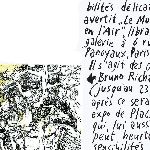 bilités délicat
averti "Le Mu
en l'Air", libra
galerie à 6 ru
Panoyaux, Paris
Il s'agit des c
←Bruno Richa
(jusqu'au 23
après ce sera
expo de Plac
qui, lui auss
peut heurte
sensibilités